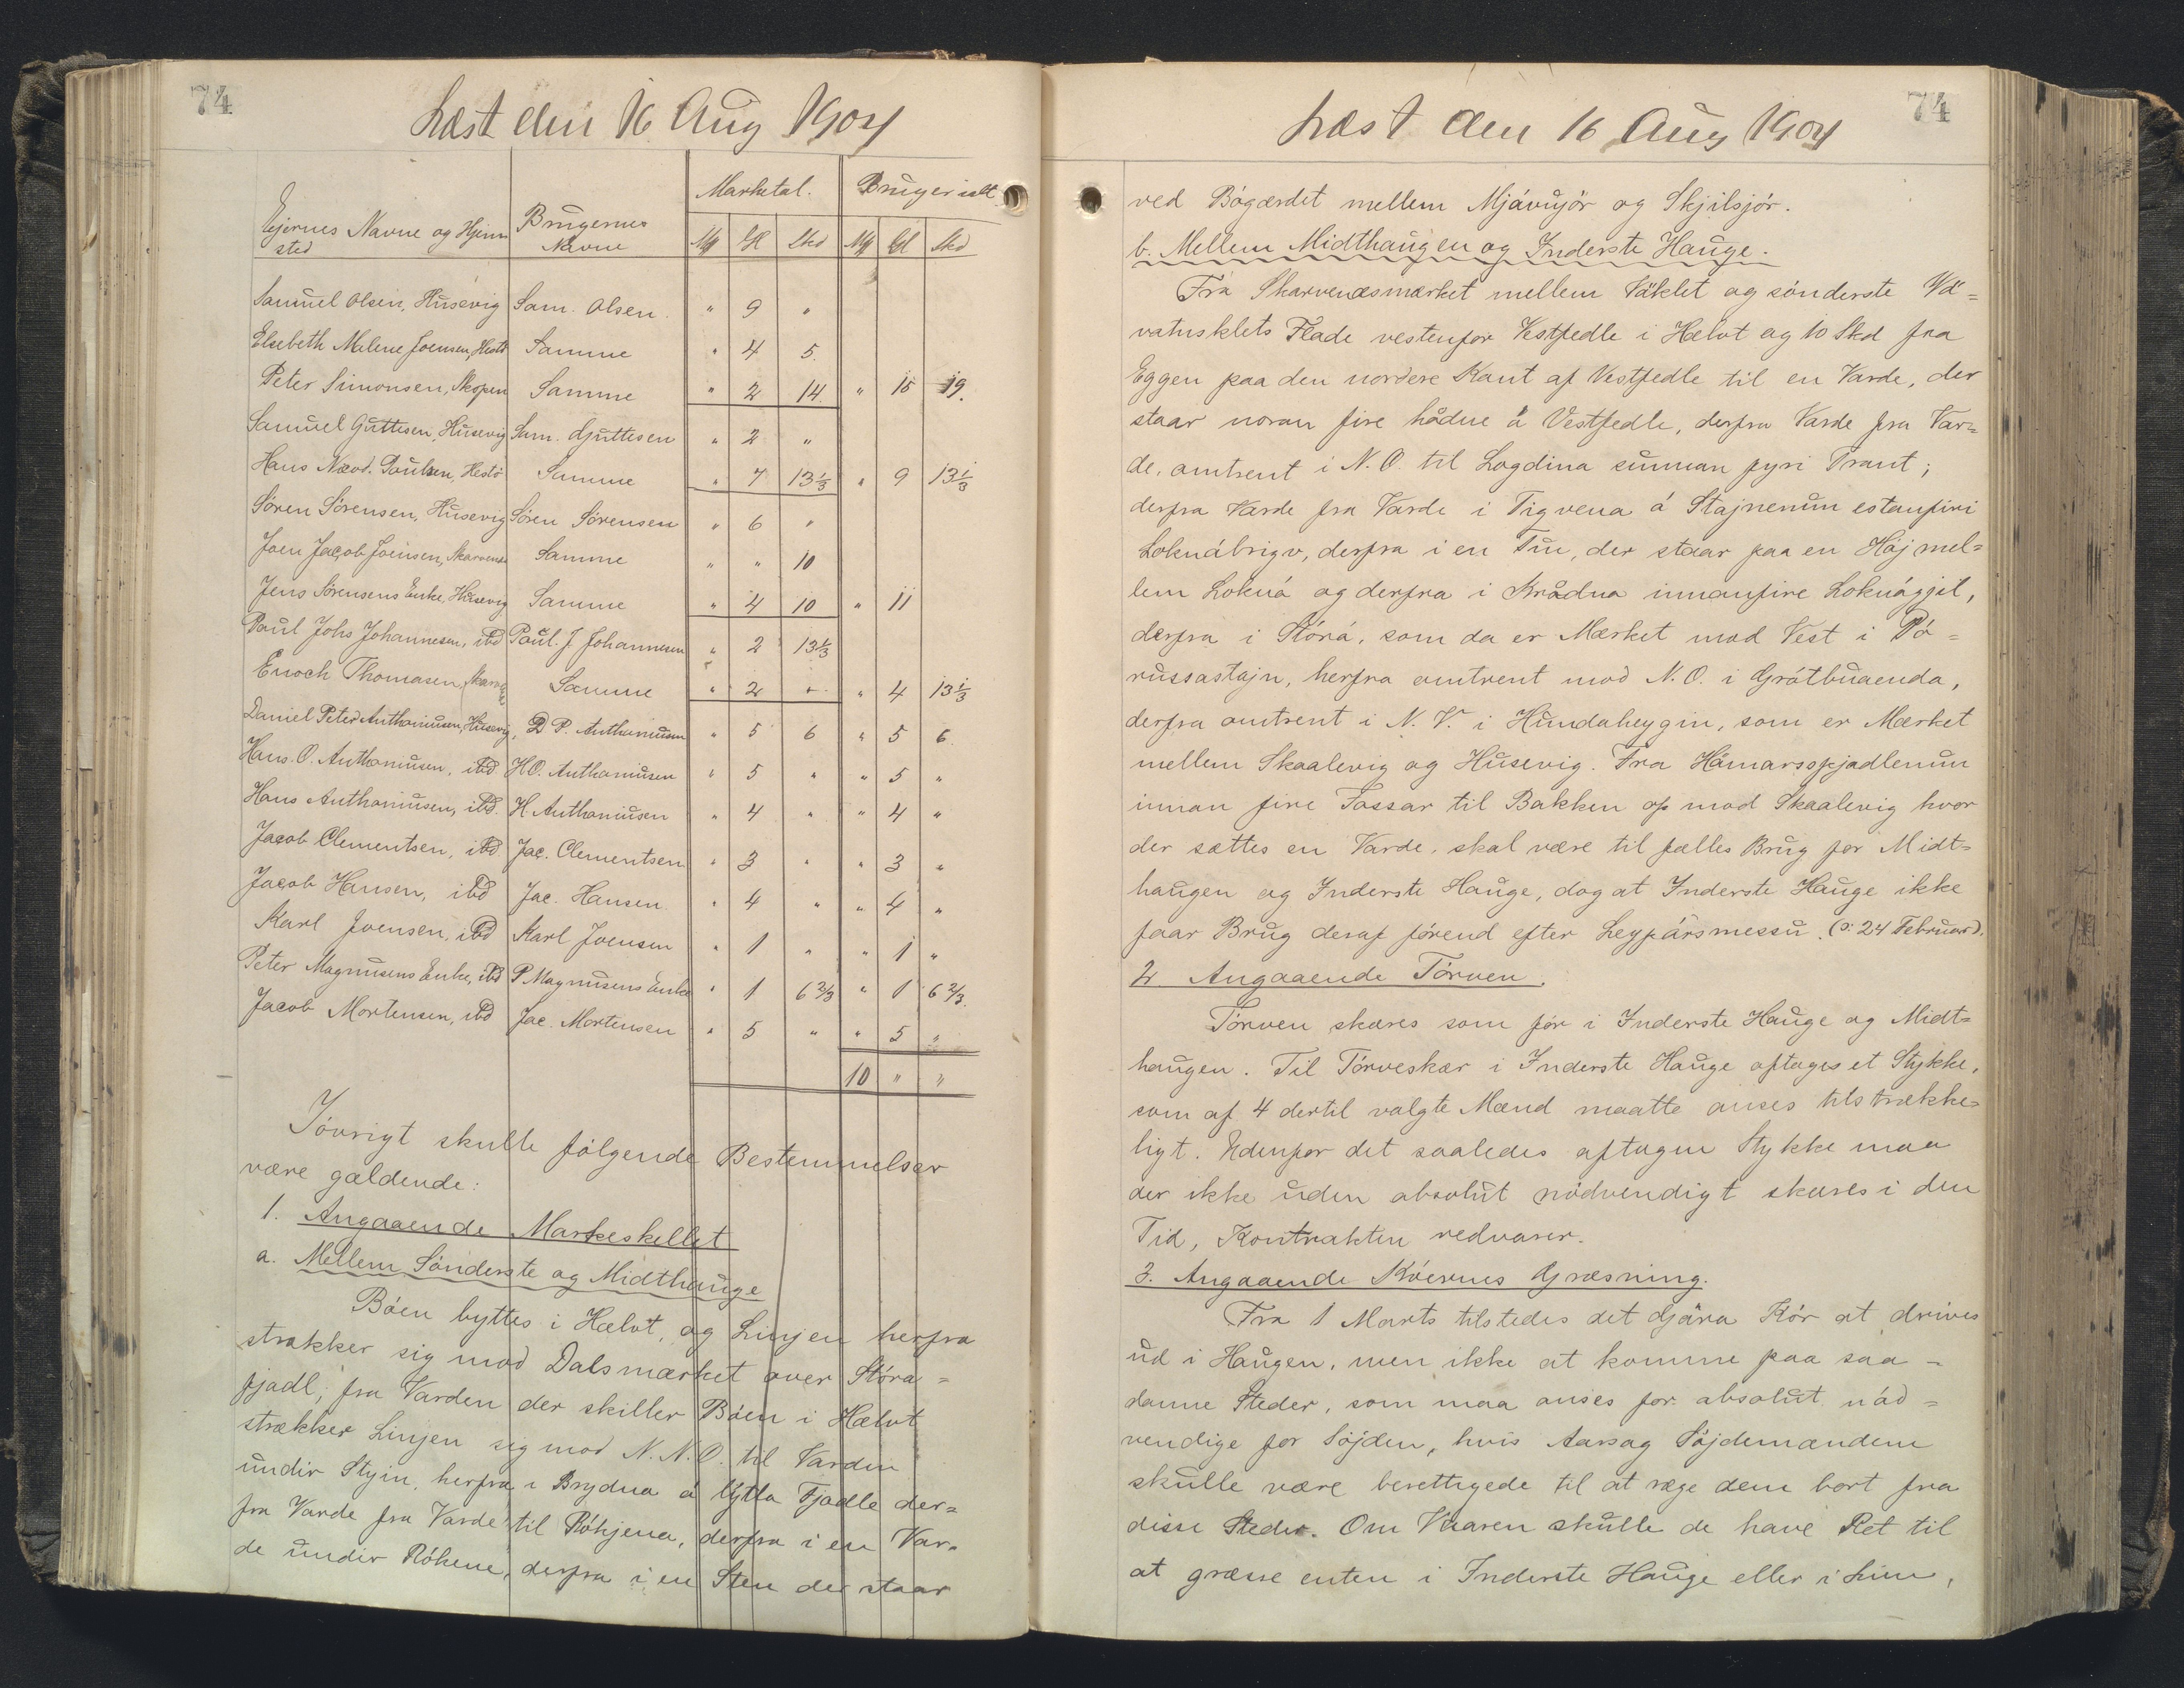 74
Læst den 16 Aug 1904
Ejernes Navne og Hjem
sted
Brugernes
Navne
Marketal.
Bruger ialt.
Mk Gl Skd Mk Gl Skd
Samuel Olsen, Husevig Sam. Olsen " 9 "
Elsebeth Malene Joensen, Hestö Samme " 4 5.
Peter Simonsen, Skopen Samme " 2 14 " 15 19.
Samuel Guttesen, Husevig Sam. Guttesen " 2 "
Hans Poulsen, Hestö Samme " 7 13 1/3 " 9 13 1/3
Sören Sörensen, Husevig Sören Sörensen " 6 "
Joen Jacob Joensen, Skarvenes Samme " " 10
Jens Sörensens Enke, Husevig Samme " 4 10 " 11
Poul Johs Johannesen, ibd Poul. J. Johannesen " 2 13 1/3
Enoch Thomasen, Skarvenes Samme " 2 " " 4 13 1/3
Daniel Peter Anthoniusen, Husevig, D P. Anthoniusen " 5 6 " 5 6
Hans. O. Anthoniusen, ibd H.O. Anthoniusen " 5 " " 5 "
Hans Anthoniusen, ibd. H. Anthoniusen " 4 " " 4 "
Jacob Clementsen, ibd Jac. Clementsen " 3 " " 3 "
Jacob Hansen, ibd Jac. Hansen " 4 " " 4 "
Karl Joensen, ibd Karl Joensen " 1 " " 1 "
Peter Magnusens Enke, ibd P. Magnusens Enke " 1 6 2/3 " 1 6 2/3.
Jacob Mortensen, ibd Jac. Mortensen " 5 " " 5 "
10 " "
Iövrigt skulle fölgende Bestemmelser
være gældende:
1. Angaaende Markeskellet
a. Mellem Sönderste og Midthauge
Böen byttes i Hælvt, og Linjen herfra
strækker sig mod Dalsmærket over Stóra=
fjadl; fra Varden der skiller Böen i Hælvt
strækker Linjen sig mod N.N.O. til Varden
undir Styin, herfra i Brydna á lýtla Fjadle der=
fra Varde fra Varde til Róhjena, derfra i en Var=
de undir Róhene, derfra i en Sten der staar
74
Læst den 16 Aug 1904
ved Bögærdet mellem Mjávujör og Skjilsjör.
b. Mellem Midthaugen og Inderste Hauge.
Fra Skarvenæsmærket mellem Väklet og sönderste Vä=
vatnsklets Flade vestenfor Vestfedle i Hælvt og 10 Skd fra
Eggen paa den nordere Kant af Vestfedle til en Varde, der
staar noran fire hådne á Vestfedle, derfra Varde fra Var=
de, omtrent i N.O. til Logdina sunnan fyri Trant;
derfra Varde fra Varde i Tigvena á Stajnenun estanfiri
Loknábrigv, derfra i en Tue, der staar paa en Höj mel=
lem Lokná og derfra i Krådna innanfire Loknágjil,
derfra i Stórá, som da er Mærket mod Vest i Pó=
russastajn, herfra omtrent mod N.O. i Grótbuaenda,
derfra omtrent i N.V. i Hundaheygin, som er Mærket
mellem Skaalevig og Husevig. Fra Hámarsskjadlenun
innan fire Fossar til Bakken op mod Skaalevig hvor
der sættes en Varde, skal være til fælles Brug for Midt=
haugen og Inderste Hauge, dog at Inderste Hauge ikke
faar Brug deraf förend efter Leypársmessu. (ɔ: 24 Februar).
2. Angaaende Törven.
Törven skæres som för i Inderste Hauge og Midt=
haugen. Til Törveskær i Inderste Hauge aftages et Stykke,
som af 4 dertil valgte Mænd maatte anses tilstrække=
ligt. Udenfor det saaledes aftagne Stykke maa
der ikke uden absolut nödvendigt skæres i den
Tid, Kontrakten vedvarer.
3. Angaaende Köernes Græsning.
Fra 1 Marts tilstedes det Gjära Kör at drives
ud i Haugen, men ikke at komme paa saa=
danne Steder, som maa anses for absolut nöd=
vendige for Söjden, hvis Aarsag Söjdemændene
skulle være berettigede til at ræge dem bort fra
disse Steder. Om Vaaren skulle de have Ret til
at græsse enten i Inderste Hauge eller i Lun,